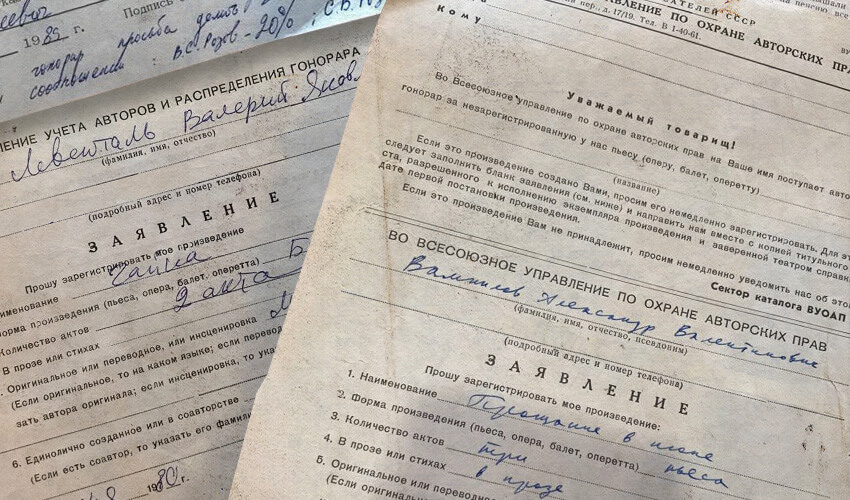 1982 г. Подпись
гонорар просьба
сообщении: В.С. Розов - 20%;
УЧЕТА АВТОРОВ И РАСПРЕДЕЛЕНИЯ ГОНОРАРА
Левенталь Валерий Яков
(фамилия, имя, отчество)
(подробный адрес и номер телефона)
ЗАЯВЛЕНИЕ
Прошу зарегистрировать мое произведение
Наименование Чайка
форма произведения (пьеса, опера, балет, оперетта) Б
Количество актов 2 акта
В прозе или стихах
Оригинальное или переводное, или инсценировка
(Если оригинальное, то на каком языке; если перевод
зать автора оригинала; если инсценировка, то ука
6. Единолично созданное или в соавторстве
(Если есть соавтор, то указать его фами
1980 г.
АТЕЛЕЙ СССР
УПРАВЛЕНИЕ ПО ОХРАНЕ АВТОРСКИХ ПРА
пер., д. 17/19. Тел. В 1-40-61.
Кому
Уважаемый товарищ!
Во Всесоюзное управление по охране авторских прав на Ваше имя поступает авто
гонорар за незарегистрированную у нас пьесу (оперу, балет, оперетту)
(название)
Если это произведение создано Вами, просим его немедленно зарегистрировать. Для эт
следует заполнить бланк заявления (см. ниже) и направить нам вместе с копией титульного
ста, разрешенного к исполнению экземпляра произведения и заверенной театром справк
дате первой постановки произведения.
Если это произведение Вам не принадлежит, просим немедленно уведомить нас об этом
Сектор каталога ВУОАП
ВО ВСЕСОЮЗНОЕ УПРАВЛЕНИЕ ПО ОХРАНЕ АВТОРСКИХ ПРАВ
Вампилов Александр Валентинович
(фамилия, имя, отчество, псевдоним)
(подробный адрес и номер телефона)
ЗАЯВЛЕНИЕ
Прошу зарегистрировать мое произведение:
1. Наименование Прощание в июне
2. Форма произведения (пьеса, опера, балет, оперетта) пьеса
3. Количество актов три
4. В прозе или стихах в прозе
5. Оригинальное или переводное
(Если оригинальное